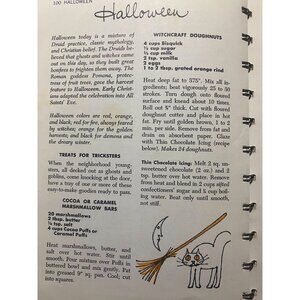 100 HALLOWEEN
Halloween
Halloween today is a mixture of
Druid practice, classic mythology,
and Christian belief. The Druids be-
lieved that ghosts and witches came
out on this day, so they built great
bonfires to frighten them away. The
Roman goddess Pomona, protec-
tress of fruit trees, gave the harvest
feature to Halloween. Early Christ-
ians adapted the celebration into All
Saints' Eve.
Halloween colors are red, orange,
and black; red for fire, always feared
by witches; orange for the golden
harvests; and black for the demons
and the dreary winter months.
TREATS FOR TRICKSTERS
When the neighborhood young-
sters, all decked out as ghosts and
goblins, come knocking at the door,
have a tray of one or more of these
easy-to-make goodies ready to pass.
COCOA OR CARAMEL
MARSHMALLOW BARS
20 marshmallows
2 tbsp. butter
1/4 tsp. salt
4 cups Cocoa Puffs or
Caramel Puffs
Heat marshmallows, butter, and
salt over hot water. Stir until
smooth. Pour mixture over Puffs in
buttered bowl and mix gently. Pat
into greased 9" sq. pan. Cool; cut
into squares.
WITCHCRAFT DOUGHNUTS
4 cups Bisquick
1/2 cup sugar
2/3 cup milk
2 tsp. vanilla
2 eggs
1 to 2 tbsp. grated orange rind
Heat deep fat to 375°. Mix all in-
gredients; beat vigorously 25 to 30
strokes. Turn dough onto floured
surface and knead about 10 times.
Roll out 3/8" thick. Cut with floured
doughnut cutter or place in hot
fat. Fry until golden brown, 1 to 2
min. per side. Remove from fat and
drain on absorbent paper. Glaze
with Thin Chocolate Icing (recipe
below). Makes 24 doughnuts.
Thin Chocolate Icing: Melt 2 sq. un-
sweetened chocolate (2 oz.) and 2
tbsp. butter over hot water. Remove
from heat and blend in 2 cups sifted
confectioners' sugar and 1/3 cup boil-
ing water. Beat only until smooth,
not stiff.